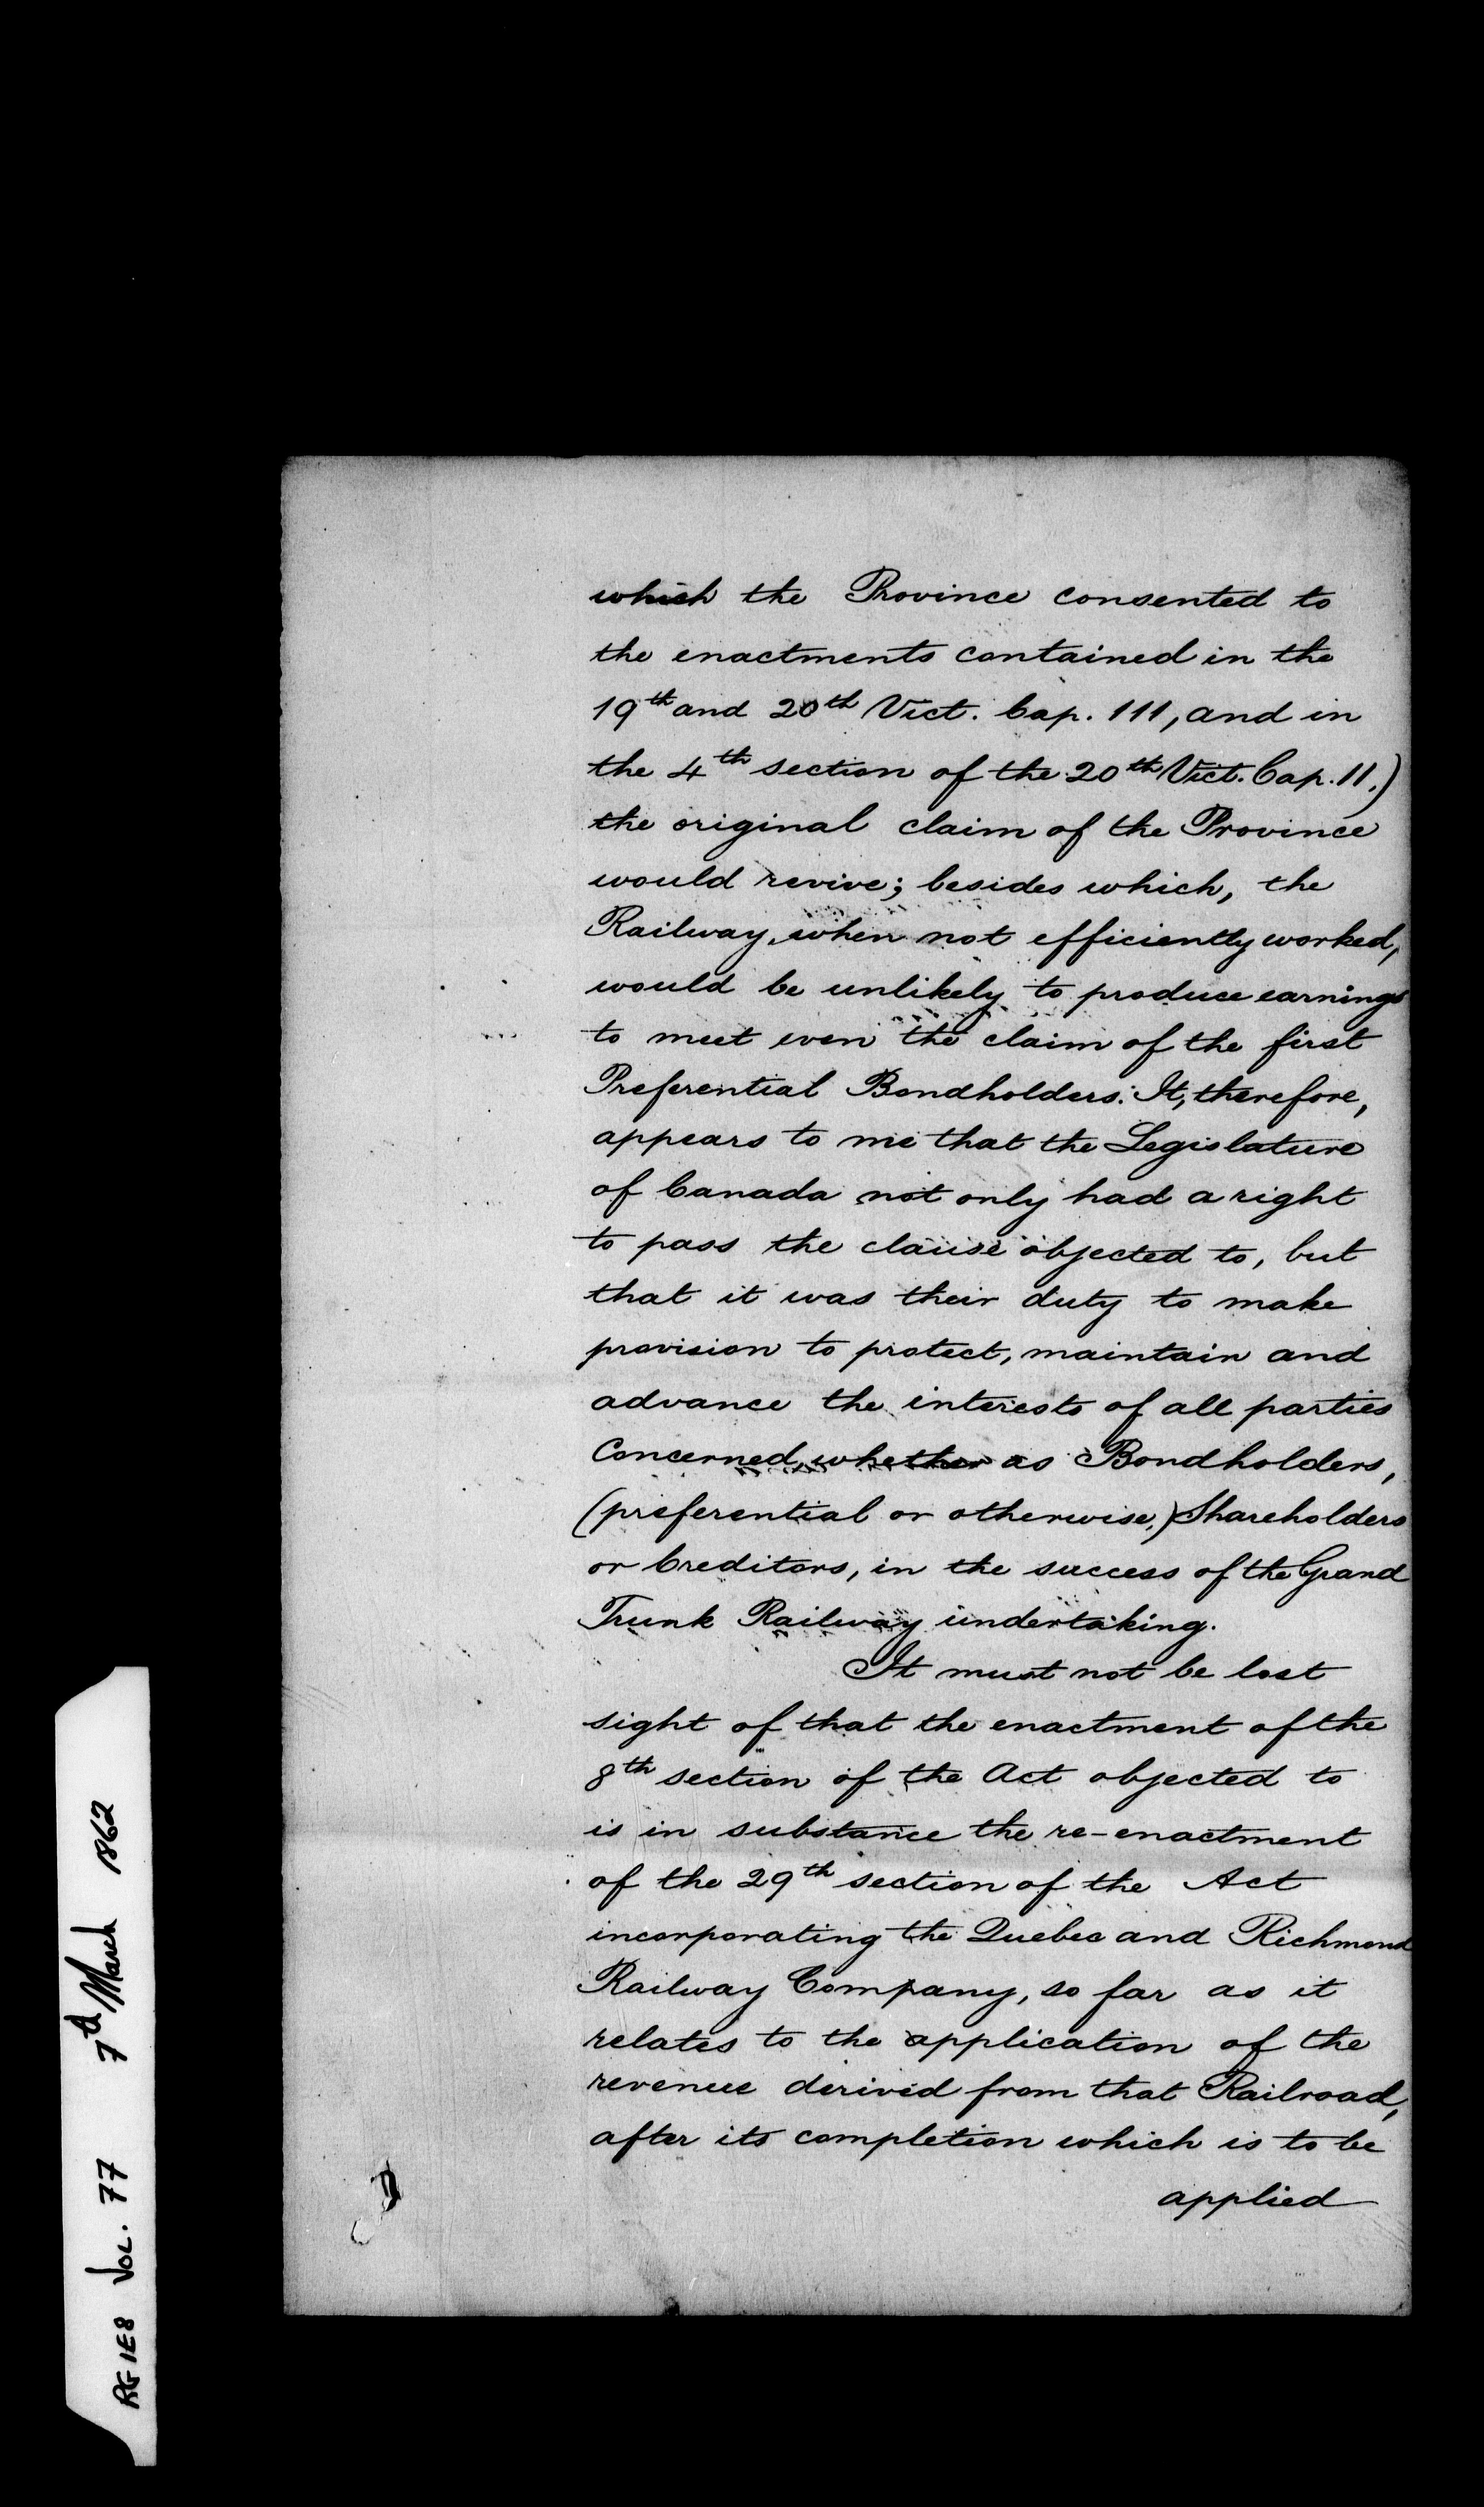 which the Province consented to
the enactments contained in the
19th and 20th Vict. Cap. 111, and in
the 4th section of the 20th Vict. Cap. 11.)
the original claim of the Province
would revive; besides which, the
Railway, when not efficiently worked,
would be unlikely to produce earnings
to meet even the claim of the first
Preferential Bondholders. It, therefore,
appears to me that the Legislature
of Canada not only had a right
to pass the clause objected to, but
that it was their duty to make
provision to protect, maintain and
advance the interests of all parties
Concerned, whether as Bondholders,
(preferential or otherwise,) Shareholders
or Creditors, in the success of the Grand
Trunk Railway undertaking.
It must not be lost
sight of that the enactment of the
8th section of the Act objected to
is in substance the re-enactment
of the 29th section of the Act
incorporating the Quebec and Richmond
Railway Company, so far as it
relates to the application of the
revenue derived from that Railroad,
after its completion which is to be
applied
RG 1E8 Vol. 77 7th March 1862